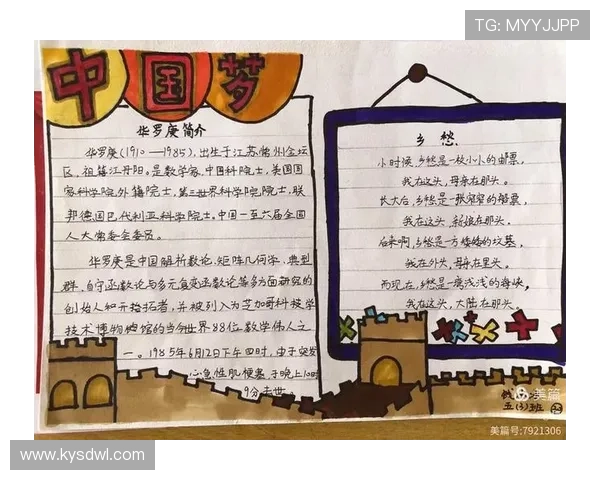 TG: MYYJJPP
中国梦
华罗庚简介
华罗庚(1910—1985),出生于江苏常州金坛
区,祖籍江苏丹阳。是数学家,中国科院士,美国国
家科学院外籍院士,第三世界科学院院士,联
邦德国巴代利亚科学院院士,中国一至六届全国
人大常委会委员。
华罗庚是中国解析数论,矩阵几何学、典型
群、自守函数论与多元复变函数论等多方面研究的
创始人和开拓者,并被列入为芝加哥科技学
技术博物馆的当今世界88位数学伟人之
一。1985年6月12日下午四时,由于突发
心急性肌梗塞,于晚上10时
9分去世。
乡愁
小时候,乡愁是一枚小小的邮票,
我在这头,母亲在那头。
长大后,乡愁是一张窄窄的船票,
我在这头,新娘在那头。
后来啊,乡愁是一方矮矮的坟墓,
我在外头,母亲在里头。
而现在,乡愁是一湾浅浅的海峡,
我在这头,大陆在那头。
美篇
五(3)班
美篇号:7921306
www.kysdwl.com